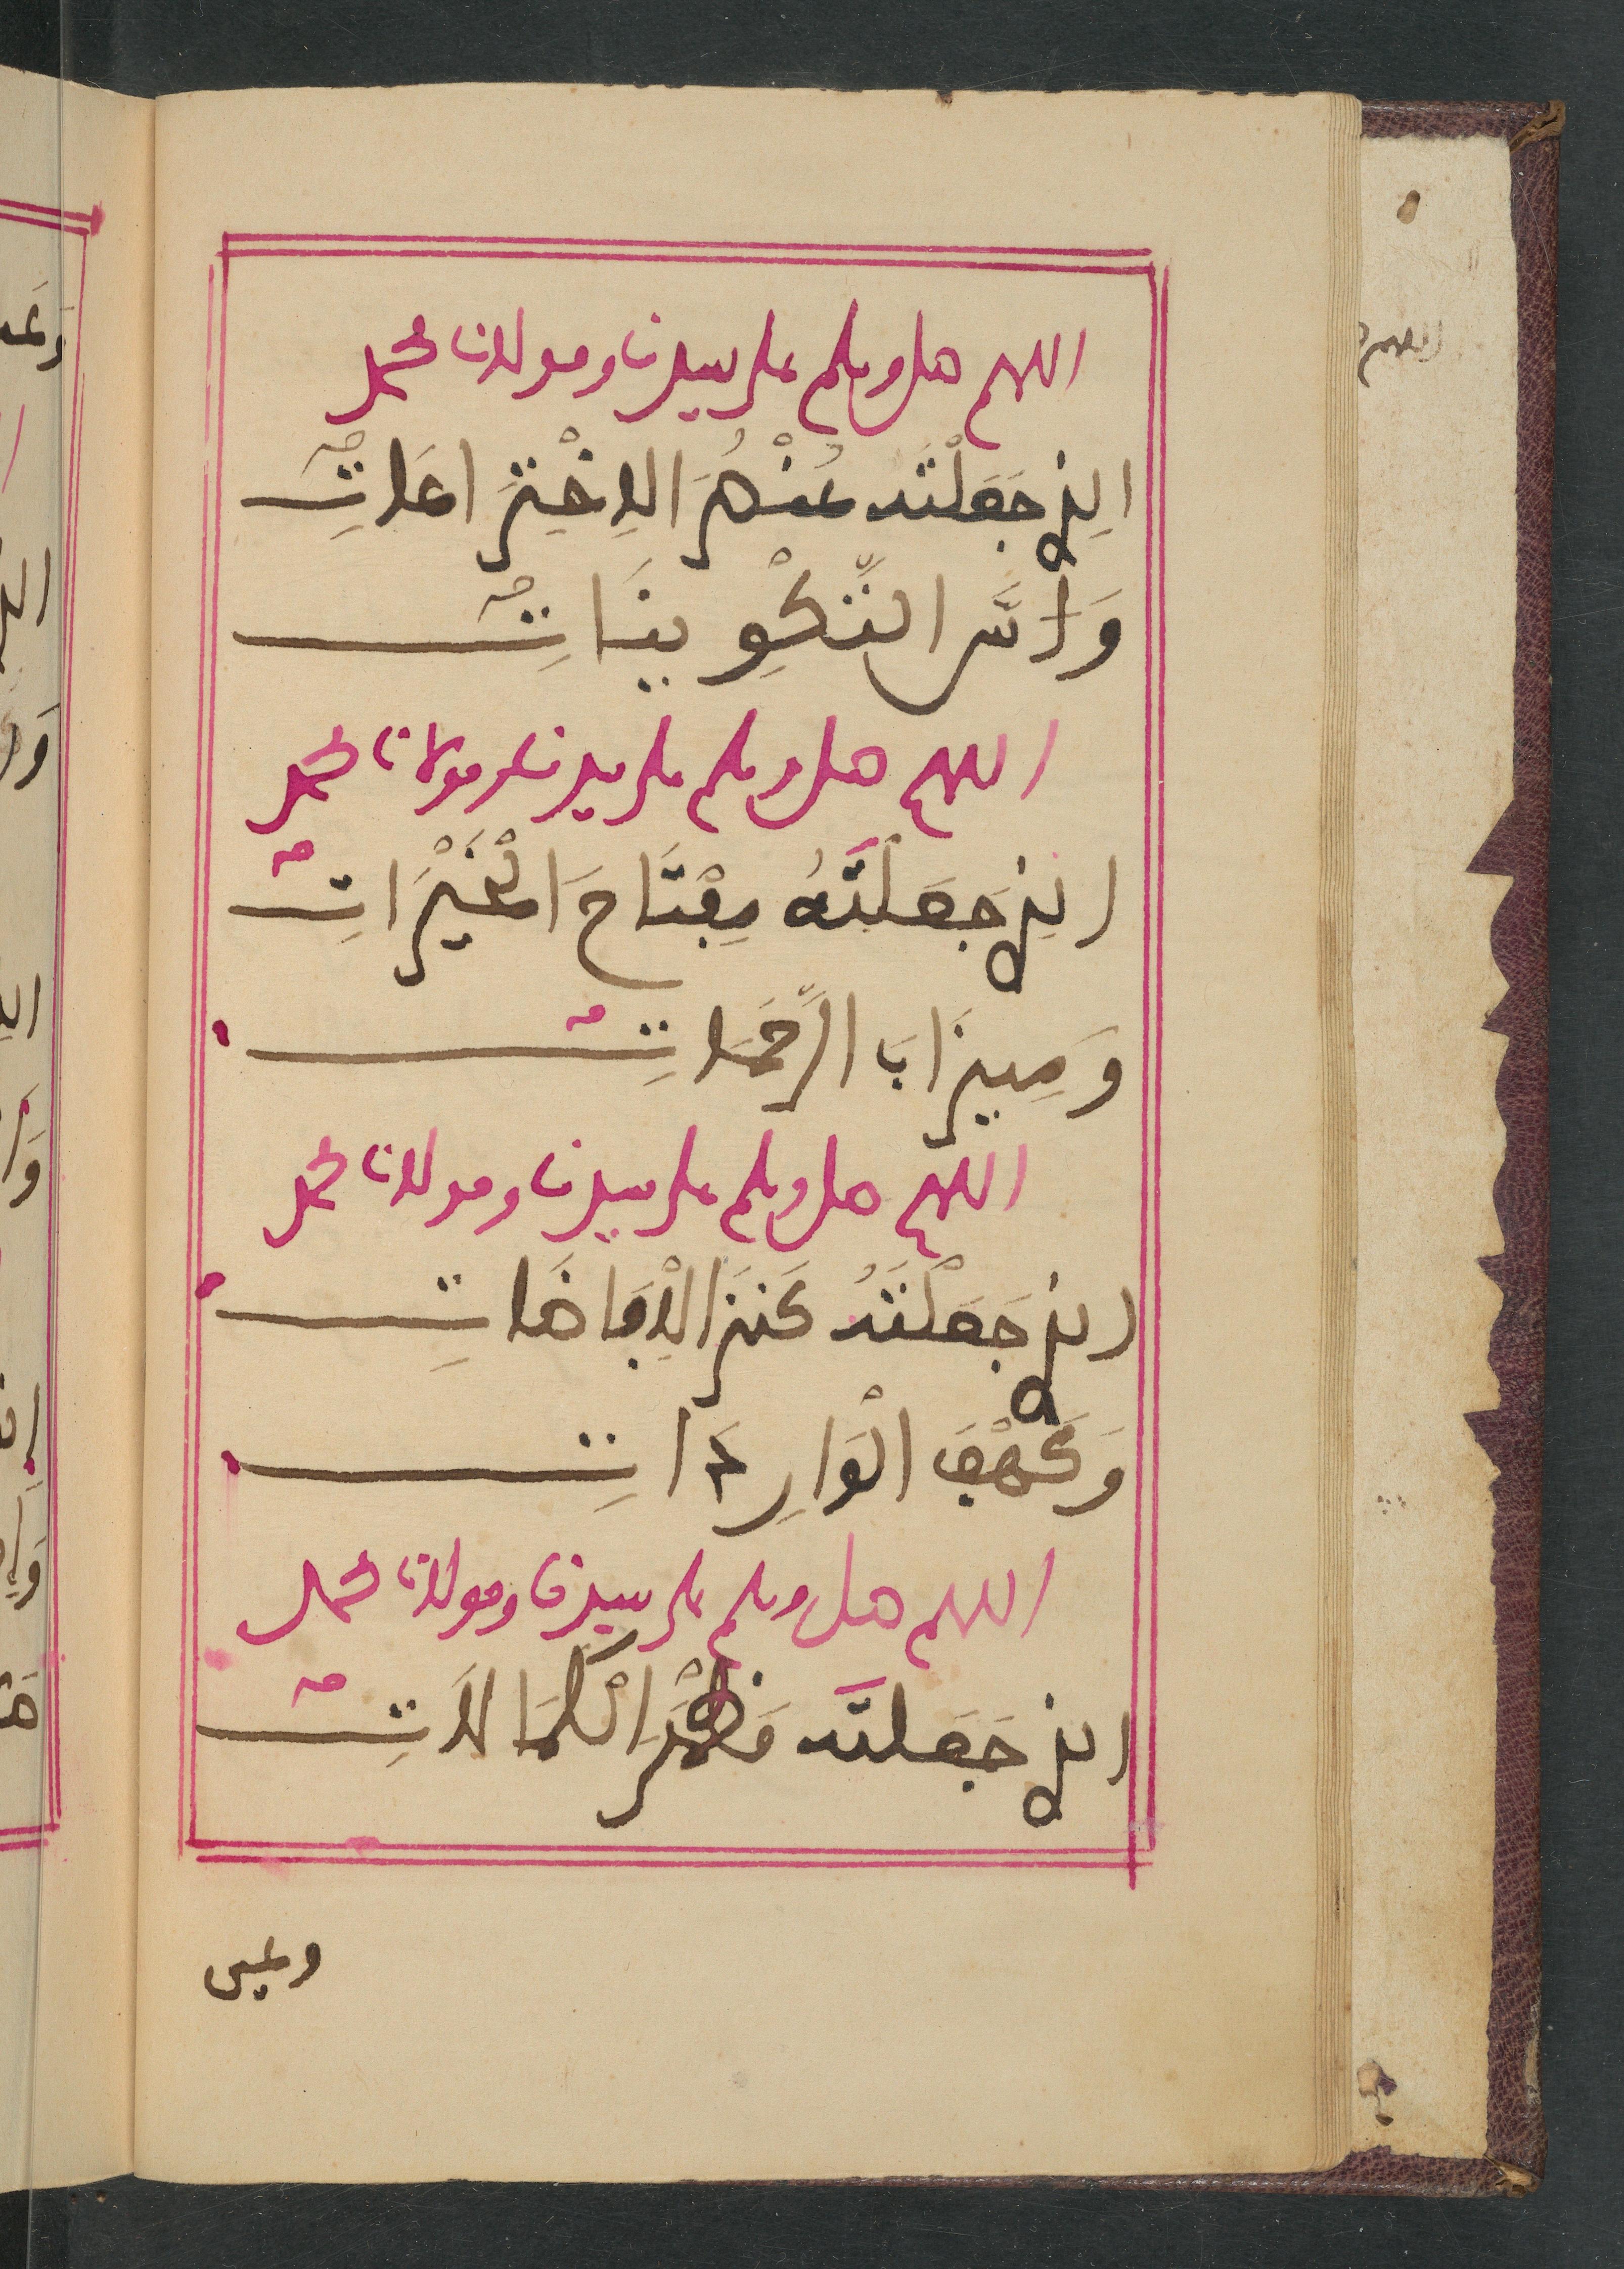 اللهم صل وسلم على سيدنا ومولانا محمد
الذي جَعَلْتَهُ عُنْصُرَ الاِخْتِرَاعَاتِ
وَأُسَّ التَّكْوِينَاتِ
اللهم صل وسلم على سيدنا ومولانا محمد
الذي جَعَلْتَهُ مِفْتَاحَ الْخَيْرَاتِ
وَمِيزَابَ الرَّحَمَاتِ
اللهم صل وسلم على سيدنا ومولانا محمد
الذي جَعَلْتَهُ كَنْزَ الْإِفَاضَاتِ
وَكَهْفَ الْوَارِدَاتِ
اللهم صل وسلم على سيدنا ومولانا محمد
الذي جَعَلْتَهُ مَظْهَرَ الْكَمَالَاتِ
وعين